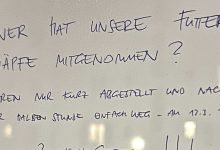 WER HAT UNSERE FUTTER
NÄPFE MITGENOMMEN?
REN NUR KURZ ABGESTELLT UND NAC
R HALBEN STUNDE EINFACH WEG - AM 12.1.
!!!